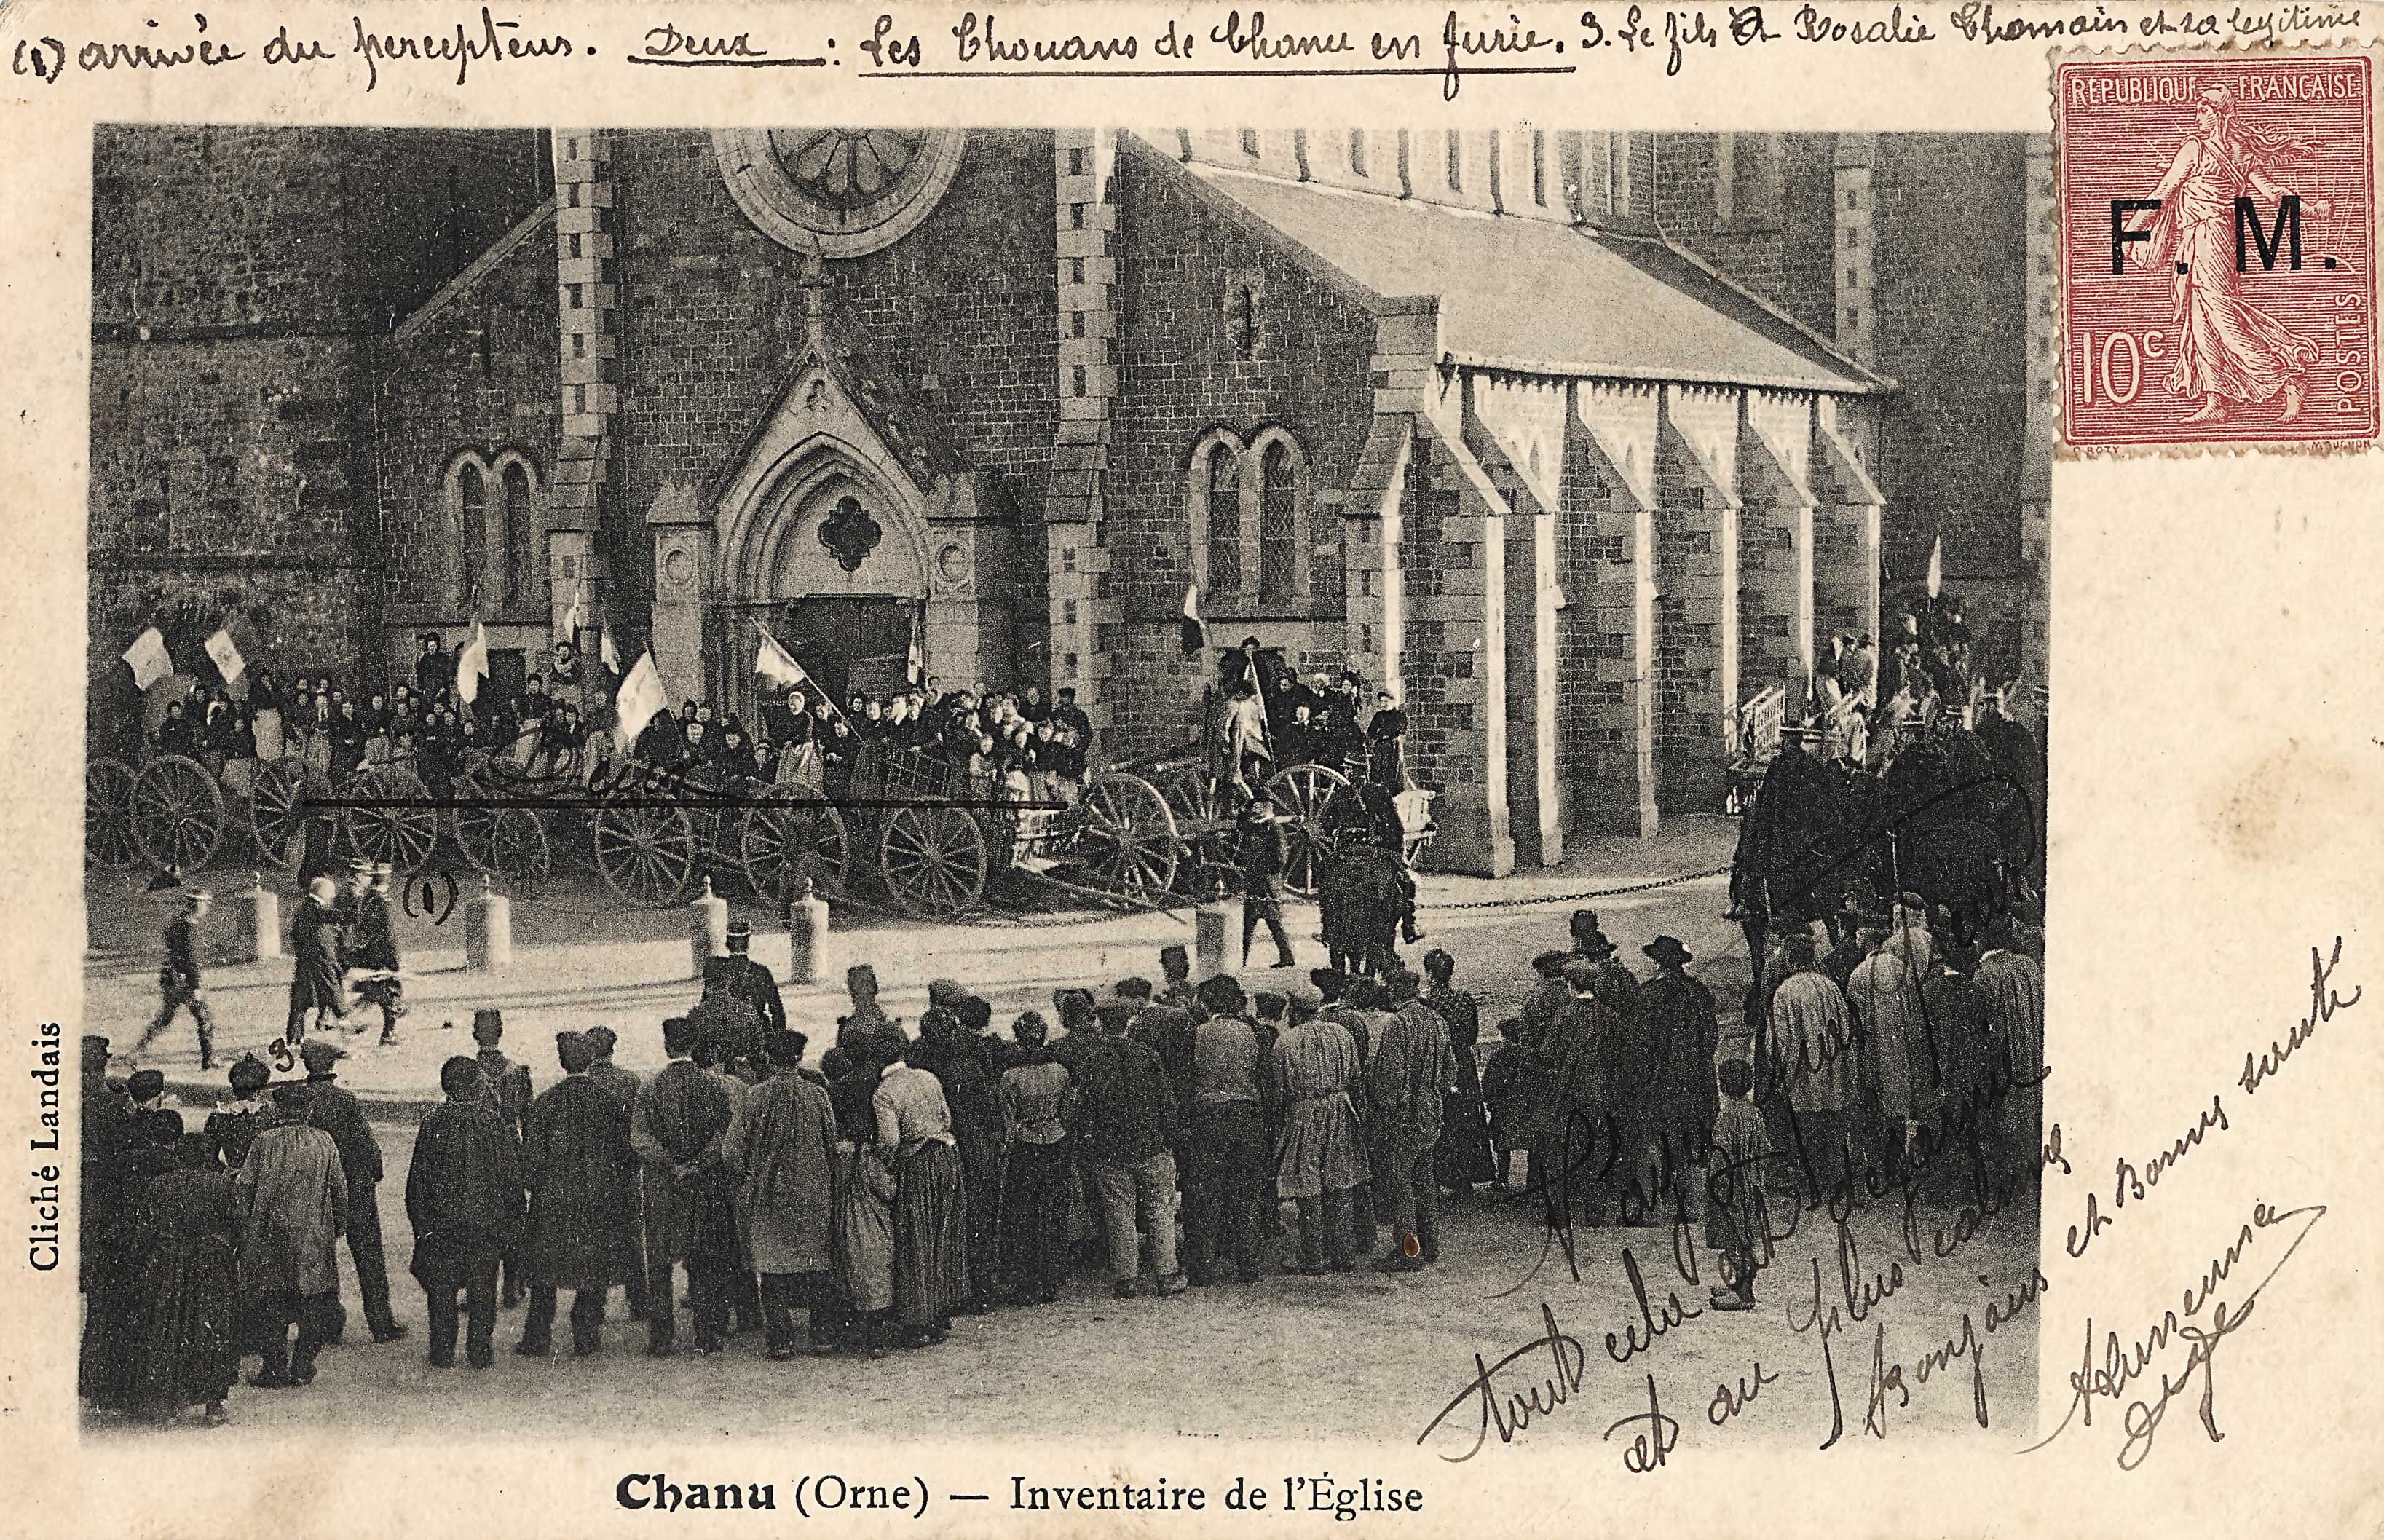 (1) arrivée du percepteur. Deux : Les Chouans de Chanu en furie. 3. Le fils à Rosalie Thomain et sa légitime
REPUBLIQUE FRANÇAISE
F. M.
10c
POSTES
O. ROTY
Deux
(1)
3
N'ayez pas peur
tout cela est désarmé
et au plus calme
Bonjour et Bonnes santé
Cliché Landais
Chanu (Orne) — Inventaire de l'Église